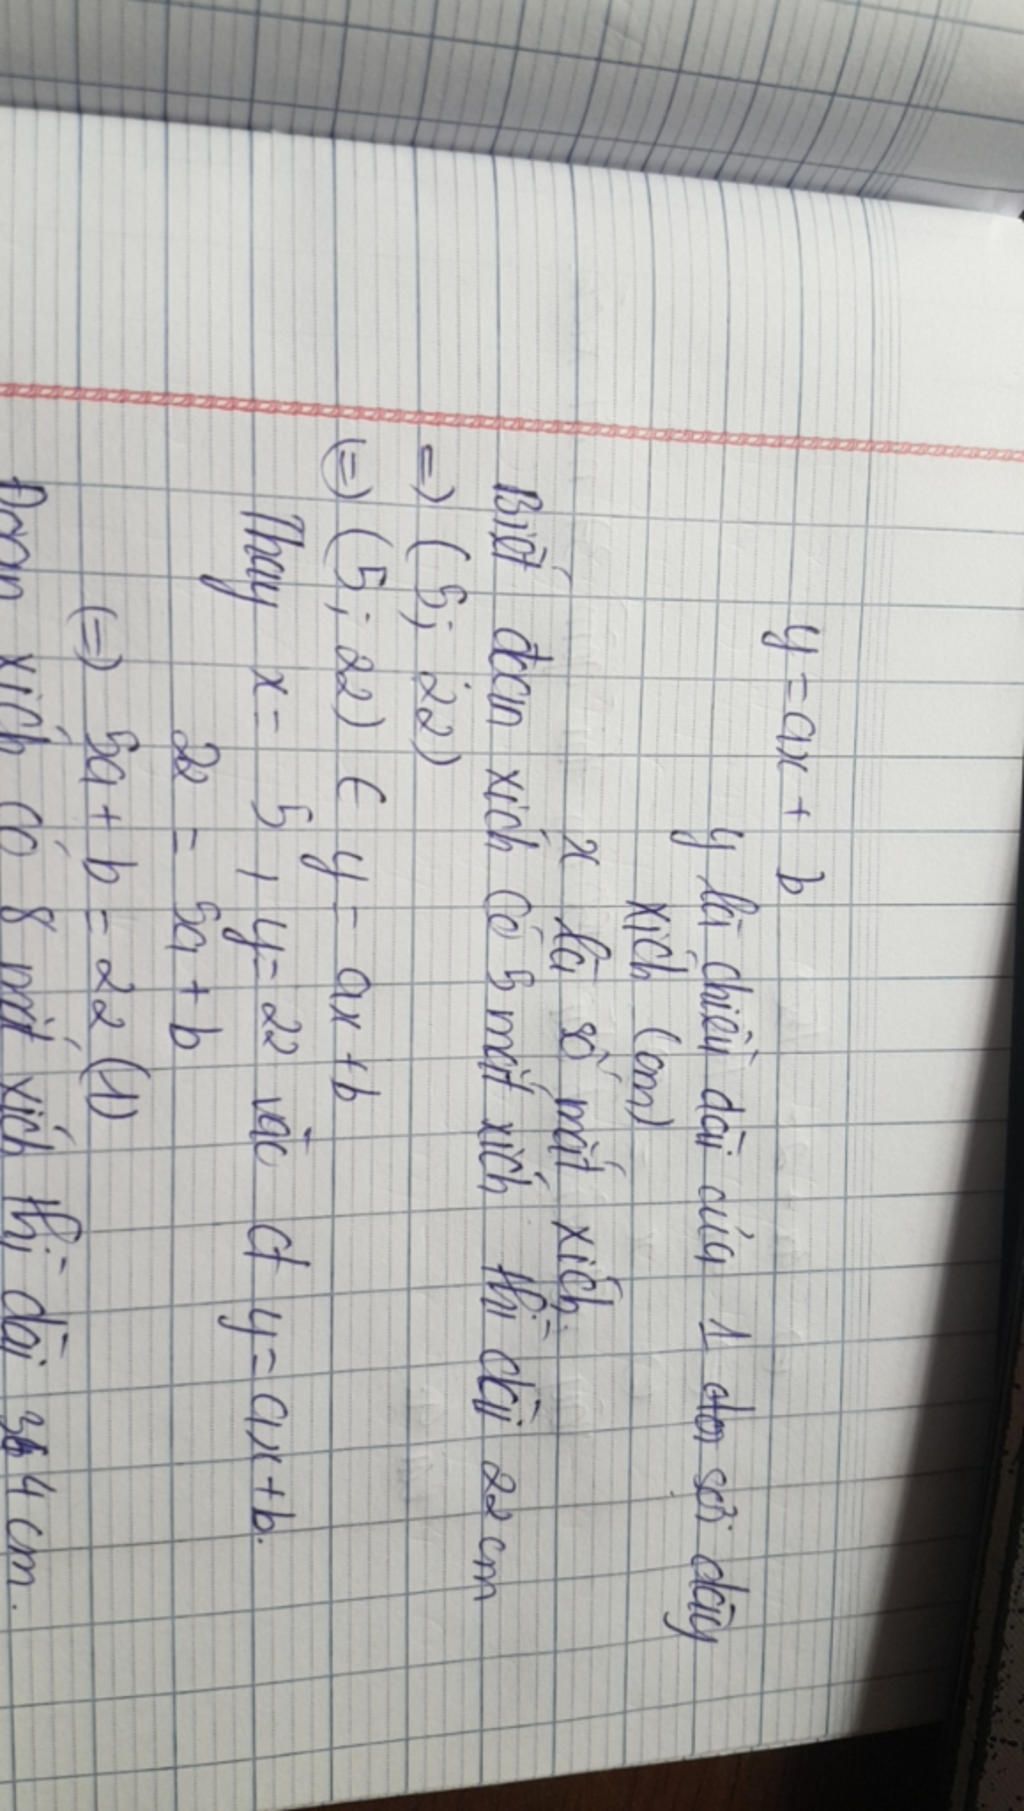 y = ax + b
y là chiều dài của 1 sợi dây
xích (cm)
x là số mắt xích.
Biết đoạn xích có 5 mắt xích thì dài 22 cm
=> (5; 22)
(=) (5; 22) ∈ y = ax + b
Thay x = 5, y = 22 vào ct y = ax + b.
22 = 5a + b
(=) 5a + b = 22 (1)
Đoạn xích có 8 mắt xích thì dài 34 cm.